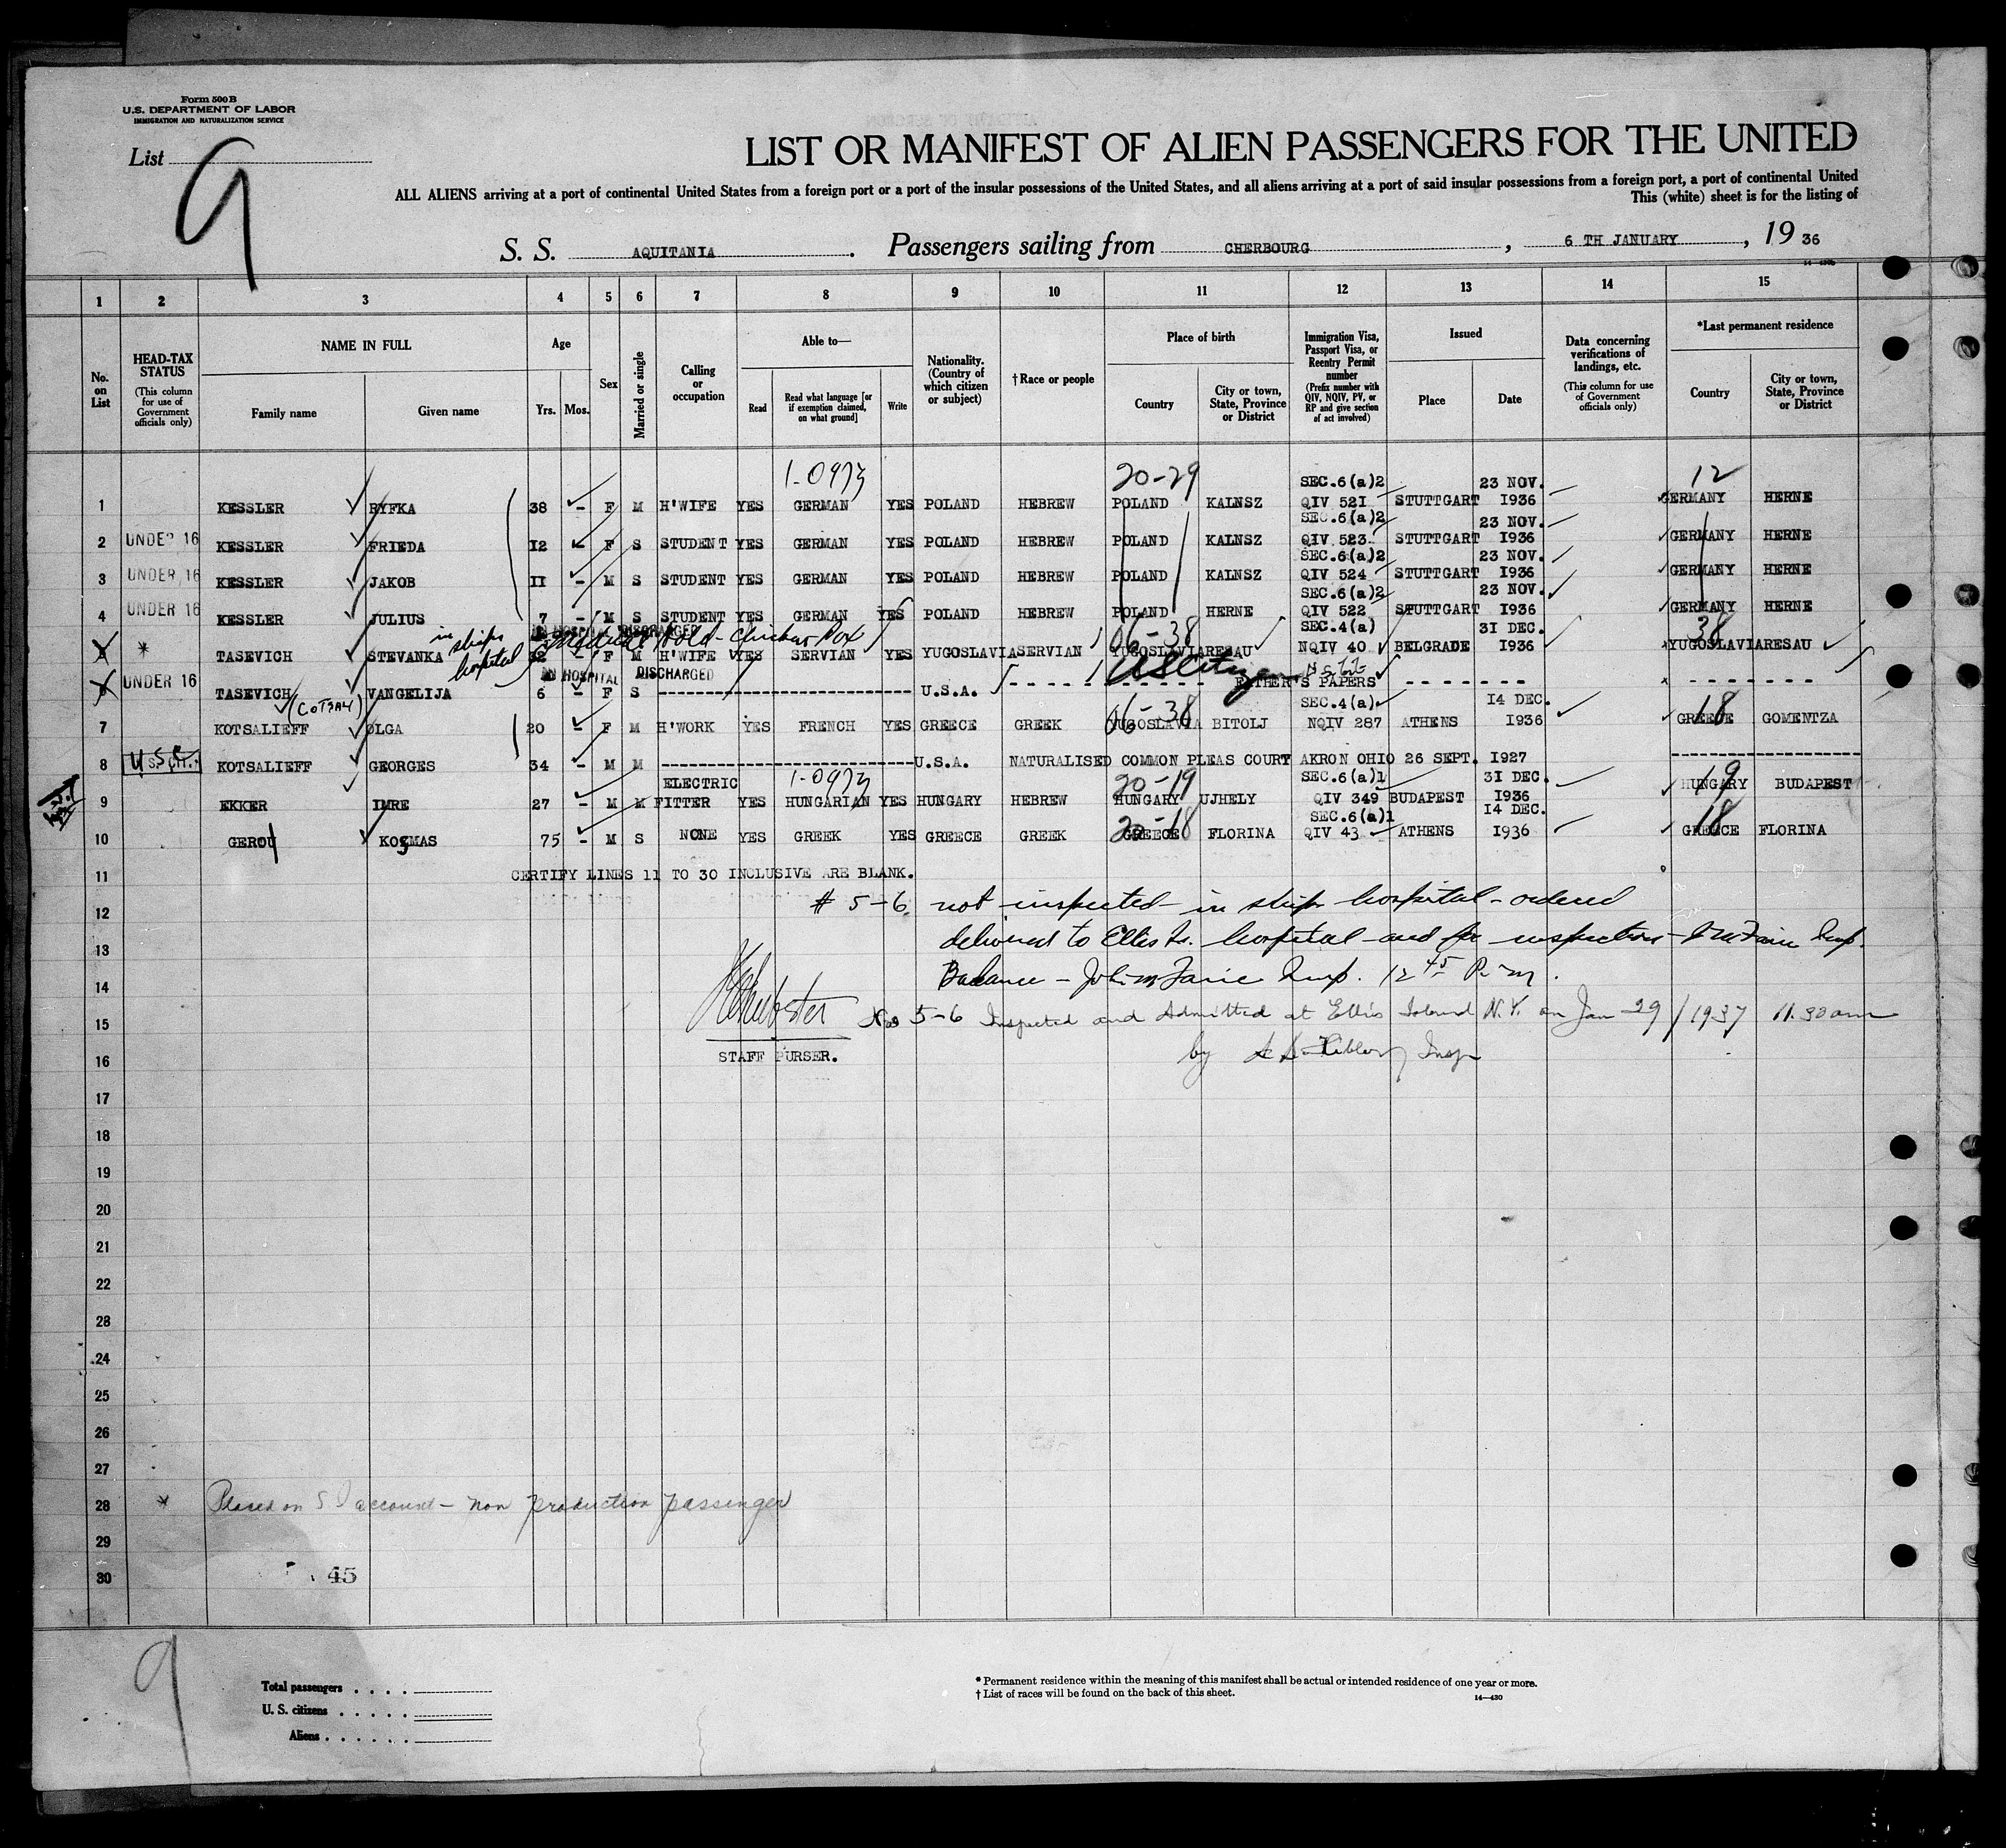 Form 500 B
U.S. DEPARTMENT OF LABOR
IMMIGRATION AND NATURALIZATION SERVICE
List 9
LIST OR MANIFEST OF ALIEN PASSENGERS FOR THE UNITED
ALL ALIENS arriving at a port of continental United States from a foreign port or a port of the insular possessions of the United States, and all aliens arriving at a port of said insular possessions from a foreign port, a port of continental United
This (white) sheet is for the listing of
S. S. AQUITANIA. Passengers sailing from CHERBOURG, 6 TH JANUARY, 19 36
1 2 3 4 5 6 7 8 9 10 11 12 13 14 15
No. on List
HEAD-TAX STATUS (This column for use of Government officials only)
NAME IN FULL
Family name Given name
Age
Yrs. Mos.
Sex
Married or single
Calling or occupation
Able to—
Read Read what language [or if exemption claimed, on what ground] Write
Nationality. (Country of which citizen or subject)
†Race or people
Place of birth
Country City or town, State, Province or District
Immigration Visa, Passport Visa, or Reentry Permit number (Prefix number with QIV, NQIV, PV, or RP and give section of act involved)
Issued
Place Date
Data concerning verifications of landings, etc. (This column for use of Government officials only)
*Last permanent residence
Country City or town, State, Province or District
1-0973 20-29 SEC.6(a)2 23 NOV. 12
1 KESSLER RYFKA 38 - F M H'WIFE YES GERMAN YES POLAND HEBREW POLAND KALNSZ QIV 521 STUTTGART I936 GERMANY HERNE
SEC.6(a)2 23 NOV.
2 UNDER 16 KESSLER FRIEDA I2 - F S STUDENT YES GERMAN YES POLAND HEBREW POLAND KALNSZ QIV 523 STUTTGART I936 GERMANY HERNE
SEC.6(a)2 23 NOV.
3 UNDER 16 KESSLER JAKOB II - M S STUDENT YES GERMAN YES POLAND HEBREW POLAND KALNSZ QIV 524 STUTTGART I936 GERMANY HERNE
SEC.6(a)2 23 NOV.
4 UNDER 16 KESSLER JULIUS 7 - M S STUDENT YES GERMAN YES POLAND HEBREW POLAND HERNE QIV 522 STUTTGART I936 GERMANY HERNE
in ships hospital
IN HOSPITAL DISCHARGED
Medical Hold - Chicken Pox
06-38 SEC.4(a) 3I DEC. 38
* TASEVICH STEVANKA F M H'WIFE YES SERVIAN YES YUGOSLAVIA SERVIAN YUGOSLAVIA RESAU NQIV 40 BELGRADE I936 YUGOSLAVIA RESAU
IN HOSPITAL DISCHARGED
US Citizen
UNDER 16 TASEVICH VANGELIJA 6 - F S U.S.A. FATHER'S PAPERS
(COTSAY)
06-38 SEC.4(a) I4 DEC. 18
7 KOTSALIEFF OLGA 20 - F M H'WORK YES FRENCH YES GREECE GREEK YUGOSLAVIA BITOLJ NQIV 287 ATHENS I936 GREECE GOMENTZA
8 KOTSALIEFF GEORGES 34 - M M U.S.A. NATURALISED COMMON PLEAS COURT AKRON OHIO 26 SEPT. I927
1-0973 20-19 SEC.6(a)1 3I DEC. 19
9 EKKER IMRE 27 - M M ELECTRIC FITTER YES HUNGARIAN YES HUNGARY HEBREW HUNGARY UJHELY QIV 349 BUDAPEST I936 HUNGARY BUDAPEST
20-18 SEC.6(a)1 I4 DEC. 18
10 GEROU KOSMAS 75 - M S NONE YES GREEK YES GREECE GREEK GREECE FLORINA QIV 43 ATHENS I936 GREECE FLORINA
11 CERTIFY LINES 11 TO 30 INCLUSIVE ARE BLANK.
12 # 5-6 not inspected - in ships hospital - ordered
13 delivered to Ellis Is. hospital - and for inspection - Insp.
14 Balance - Insp. 12 45 P.M.
15 Nos 5-6 Inspected and Admitted at Ellis Island N.Y. on Jan 29/1937 11.30 am
STAFF PURSER.
16 by Insp
17
18
19
20
21
22
28
24
25
26
27
28 * Placed on S I account - non production passenger
29
30
45
9
Total passengers . . . .
U. S. citizens . . . . .
Aliens . . . . . .
* Permanent residence within the meaning of this manifest shall be actual or intended residence of one year or more.
† List of races will be found on the back of this sheet.
14—430